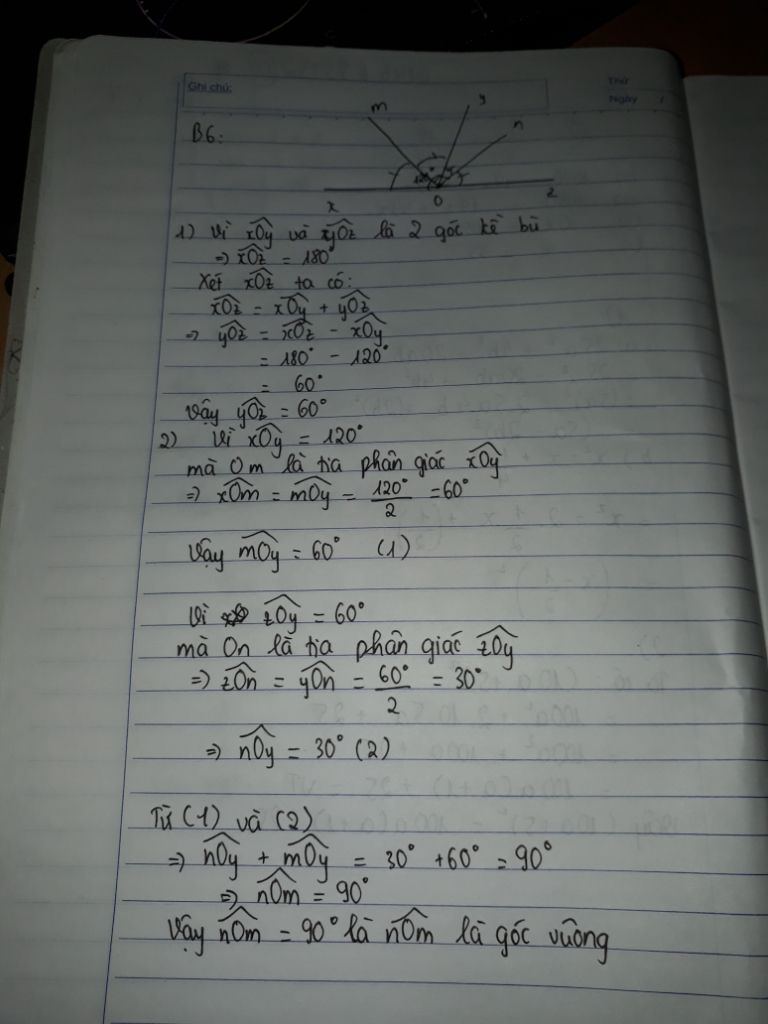 Ghi chú:
Thứ
Ngày /
B6:
m
y
n
x
O
z
1) Vì xOy và yOz là 2 góc kề bù
⇒ xOz = 180°
Xét xOz ta có:
xOz = xOy + yOz
⇒ yOz = xOz - xOy
= 180° - 120°
= 60°
Vậy yOz = 60°
2) Vì xOy = 120°
mà Om là tia phân giác xOy
⇒ xOm = mOy = 120°/2 = 60°
Vậy mOy = 60° (1)
Vì zOy = 60°
mà On là tia phân giác zOy
⇒ zOn = yOn = 60°/2 = 30°
⇒ nOy = 30° (2)
Từ (1) và (2)
⇒ nOy + mOy = 30° + 60° = 90°
⇒ nOm = 90°
Vậy nOm = 90° là nOm là góc vuông